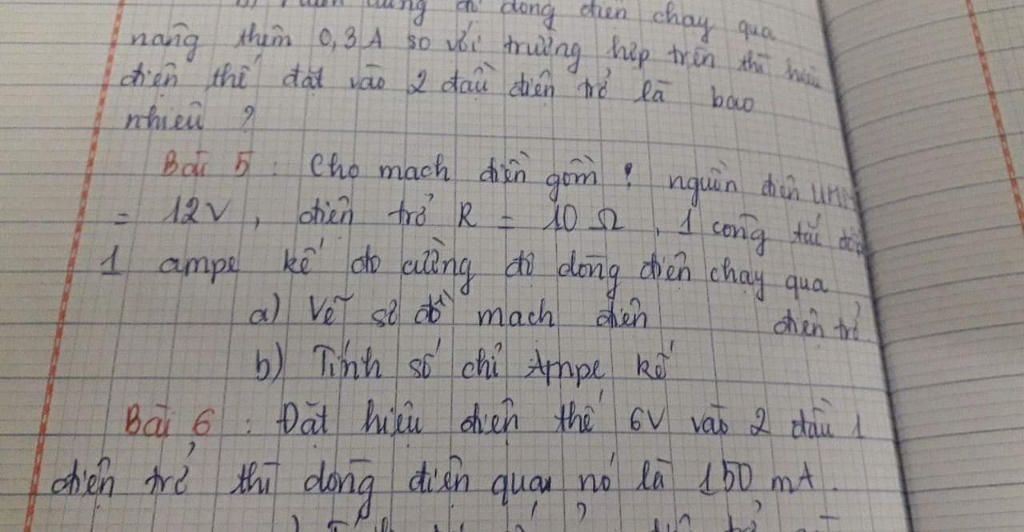 dòng điện chạy qua
năng thêm 0,3A so với trường hợp trên thì hiệu
điện thế đặt vào 2 đầu điện trở là bao
nhiêu ?
Bài 5 : Cho mạch điện gồm ! nguồn điện
= 12V, điện trở R = 10 Ω, 1 công tắc
1 ampe kế đo cường độ dòng điện chạy qua
điện trở
a) Vẽ sơ đồ mạch điện
b) Tính số chỉ Ampe kế
Bài 6 : Đặt hiệu điện thế 6V vào 2 đầu 1
điện trở thì dòng điện qua nó là 150 mA.